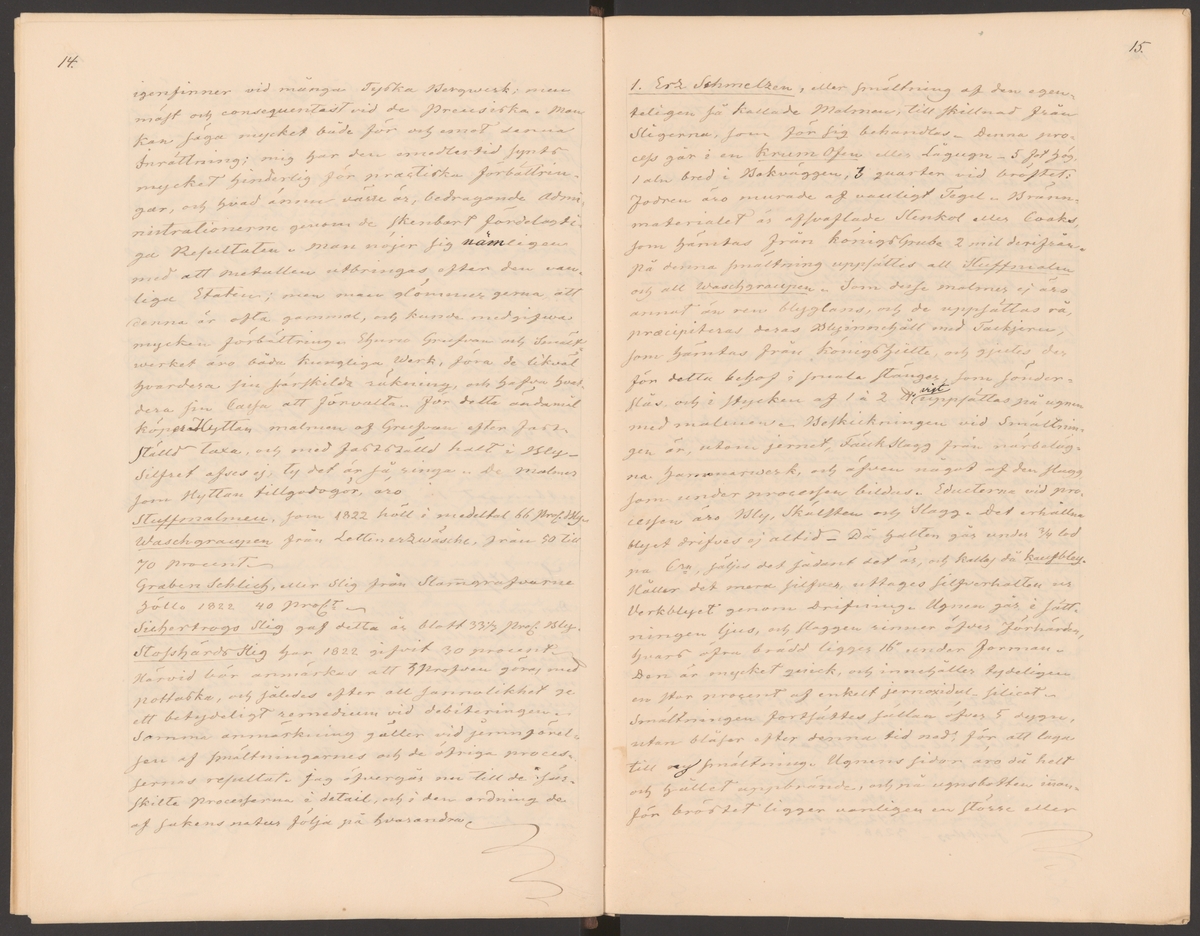 14.
igenfinner vid många Tyska Bergwerk; men
mäst och consequentast vid de Preussiska. Man
kan säga mycket både för och emot denna
Inrättning; mig har den emedlertid synts
mycket hinderlig för practiska förbättrin-
gar, och hvad ännu värre är, bedragande Admi-
nistrationerne genom de skenbart fördelakti-
ga Resultaten. Man nöjer sig nämligen
med att metallen utbringas efter den van-
liga Etaten; men man glömmer gerna att
denna är ofta gammal, och kunde medgifva
mycken förbättring. Ehuru Grufvan och Smält-
werket äro båda kungliga Werk, föra de likväl
hvardera sin särskilda räkning, och hafva hvar-
dera sin Cassa att förvalta. För detta ändamål
köper Hyttan malmen af Grufvan efter fast-
ställd taxa, och med fastställd halt i Bly.
Silfret afses ej, ty det är så ringa. De malmer
som Hyttan tillgodogör, äro
Stuffmalmen, som 1822 höll i medeltal 66 proC. Bly.
Waschgraupen från Lettinerzwäsche, från 50 till
70 procent.
Graben Schlich, eller Slig från Slamgrafvarne
hölls 1822 40 proCt.
Sichertrogs Slig gaf detta år blott 33 1/2 proC. Bly.
Stosshärds Slig har 1822 gifvit 30 procent
Härvid bör anmärkas att profven göras med
pottaska, och således efter all sannolikhet ge
ett betydeligt remedium vid debiteringen.
Samma anmärkning gäller vid jemnförel-
sen af smältningarnes och de öfriga proces-
sernas resultat. Jag öfvergår nu till de sär-
skilta Processerna i detail, och i den ordning de
af sakens natur följa på hvarandra.
15.
1. Erz Schmelzen, eller smältning af den egen-
teligen så kallade Malmen, till skillnad från
Sligerna, som för sig behandlas. Denna pro-
cess går i en Krum Ofen eller Lågugn. 5 fot hög,
1 aln bred i Bakväggen, 3 quarter vid bröstet;
Fodren äro murade af vanligt Tegel. Bränn-
materialet är afsvaflade Stenkol eller Coaks,
som hämtas från Königs Grube 2 mil derifrån.
På denna smältning uppsättes all Stuffmalm
och all Waschgraupen. Som desse malmer ej äro
annat än ren blyglans, och de uppsättas rå,
præcipiteras deras Blyinnehåll med Tackjern,
som hämtas från Königshütte, och gjutes der
för detta behof i smala stänger, som sönder-
slås och i stycken af 1 à 2 vigt uppsättas på ugnen
med malmen. Beskickningen vid Smältnin-
gen är, utom jernet, Färsk slagg från närbeläg-
na hammarwerk, och äfven något af den slagg
som under processen bildas. Educterna vid pro-
cessen äro Bly, Skälsten och Slagg. Det erhållna
blyet drifves ej altid. Då halten går under 3/4 lod
på Ctn, säljes det sådant det är, och kallas då kaufbley.
Håller det mera silfver, uttages silfverhalten ur
Verkblyet genom Drifning. Ugnen går i sätt-
ningen ljus, och slaggen rinner öfver Förhärden,
hvars öfra brädd ligger 16" under Forman.
Den är mycket quick, och innehåller tydeligen
en stor procent af enkelt jernoxidul-silicat.
Smältningen fortsättes sällan öfver 5 dygn,
utan blåses efter denna tid ned, för att laga
till ny smältning. Ugnens sidor äro då helt
och hållet uppbrände, och på ugnsbotten innan-
för bröstet ligger vanligen en större eller